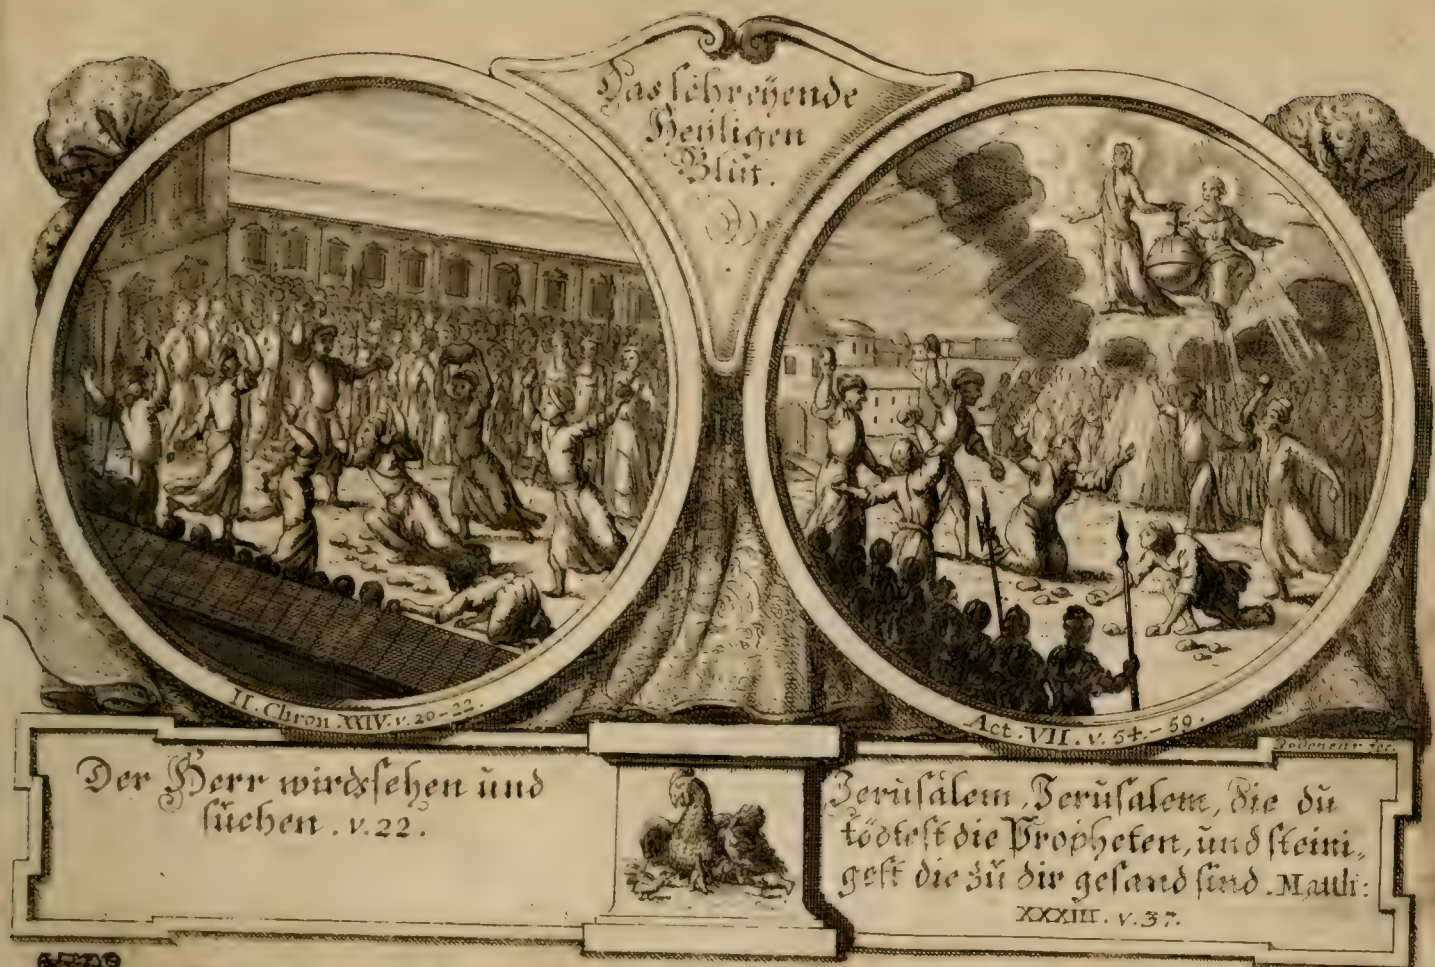 Das schreÿende
Heÿligen
Blut.
II. Chron XXIV. v. 20-22.
Act. VII. v. 54.-59.
Der Herr wirds sehen und
suchen. v. 22.
Jerusalem, Jerusalem, die du
tödtest die Propheten, und steini,
gest die zu dir gesand sind. Matth:
XXXIII. v. 37.